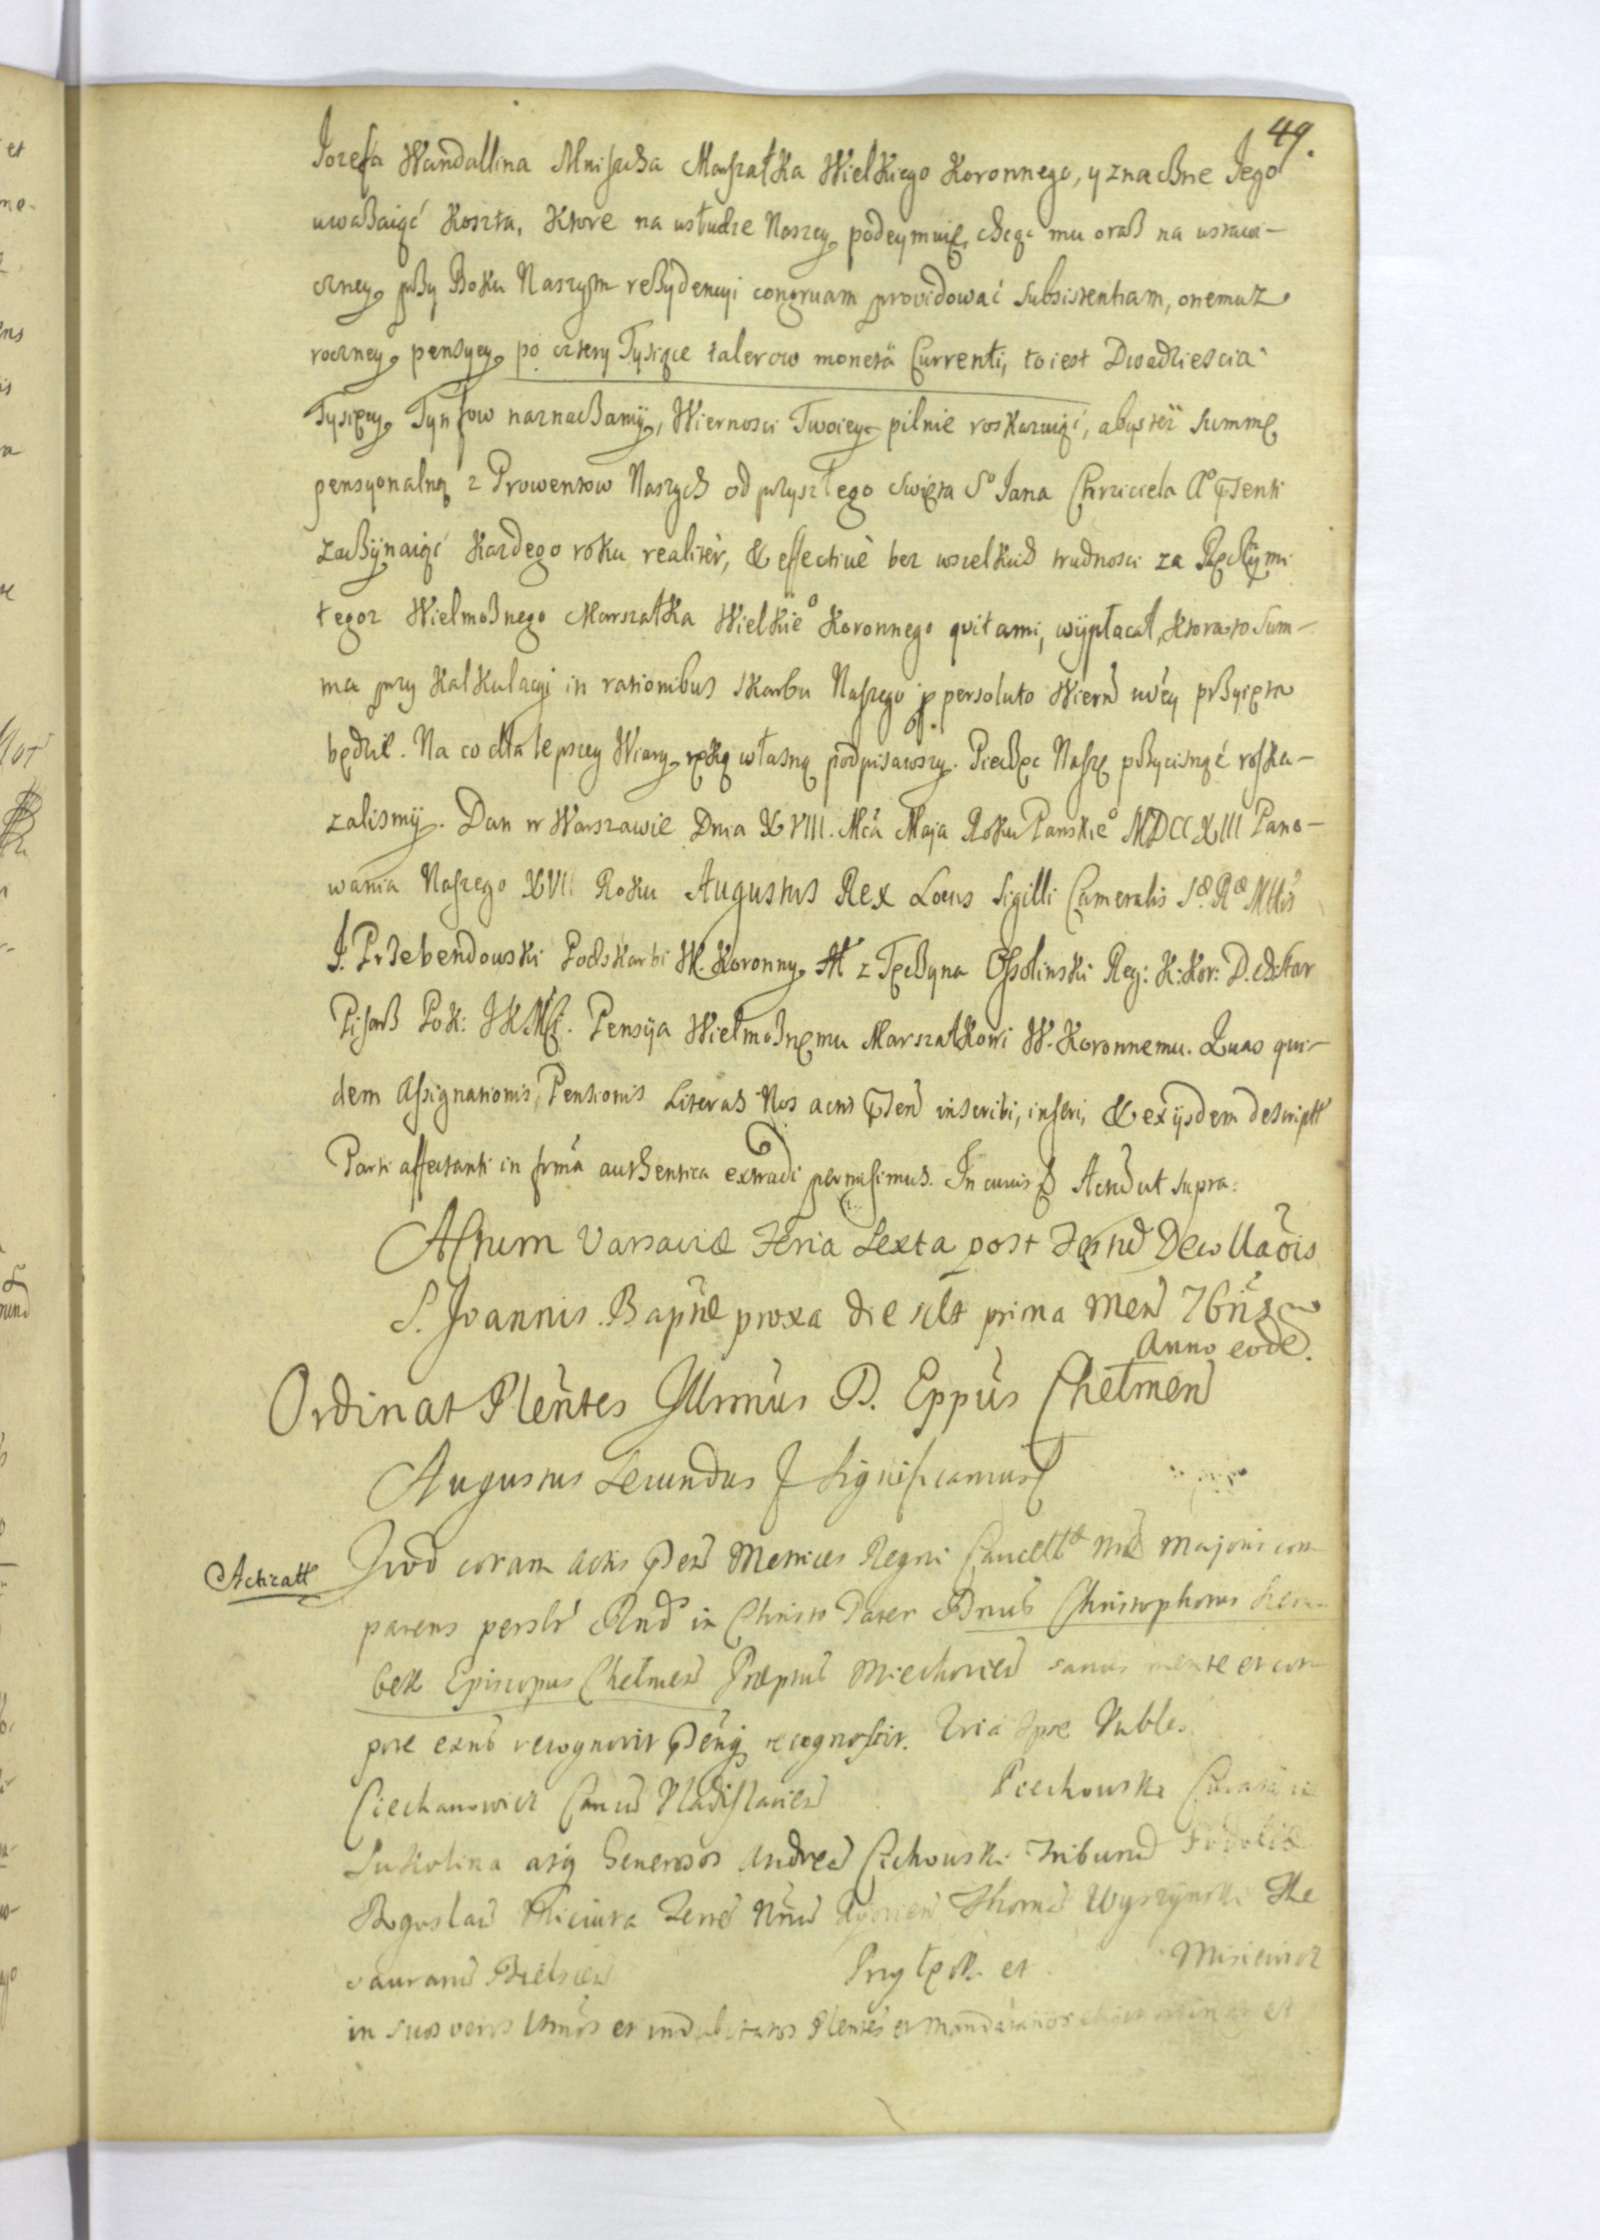 49.
Jozefa Wandallina Mniszcha Marszałka Wielkiego Koronnego, y znaczne Jego
uważaiąć Koszta, Ktore na usłudze Naszey podeymuię, chcąc mu oraz na ustawi-
czney przy Boku Naszym rezydencyi congruam providować Subsistentiam, onemuz
roczney pensyey po cztery Tysiące talerow monetâ Currenti, to iest Dwadziescia
Tysięcy Tynfow naznaczamÿ, Wiernosci Twoiey pilnie roskazuiąć, abys teÿ Summę
pensyonalną z Prowentow Naszych od przyszłego Swięta So Jana Chrziciela Ao Psenti
zaczÿnaiąć Kazdego roku realitèr, & effectivè bez wszelkich trudnosci za Ręcznÿmi
tegoz Wielmożnego Marszałka Wielkieo Koronnego qvitami, wÿpłacał, Ktora to Sum-
ma przy KalKulacyi in rationibus Skarbu Naszego p persoluto Wiern w'ey przyięta
będzie. Na co dla lepszey Wiary ręką własną podpisawszy. Pieczęć Naszę przycisnąć roska-
zalismÿ. Dan w Warszawie Dnia XVIII. Mca Maja Roku Panskieo MDCCXIII Pano-
wania Naszego XVII Roku Augustus Rex Locus Sigilli Cameralis Sæ Ræ Mttis
J. Przebendowski Podskarbi W. Koronny z Tęczyna Ossolinski Reg: K: Kor: D. & Star
Pisarz Pok: JKMsci. Pensÿa Wielmożnemu MarszałKowi W. Koronnemu. Quas qui-
dem Assignationis Pensionis Literas Nos actis Psen inscribi, inseri, & ex ÿsdem descriptt
Parti affectanti in formâ authentica extradi permisimus. In cuius Actu ut supra:
Actum Varsaviæ Feria Sexta post Festu Decollaõis
S. Joannis Baptæ proxa die sclt prima Men 7bris
Anno eode.
Ordinat Plentes Illrmus D. Eppus Chełmen
Augustus Secundus Significamus
Acticatt
Quod coram Actis Psen Metrices Regni Cancell Majoris com
parens persltr Rnd in Christo Pater Dnus Christophorus
bek Episcopus Chełmen Præptus Miechovien sanus mente et cor
pore exns recognovit Psenq recognoscit. Quia Ipse Nubles
Ciechanowicz Canc Vladislavien Piechowski
Sukolina atq Generosos Andrea Cichowski Tribun Podoliæ
Boguslau Terre Thoma Wyszynski The
sauran Bielscen Przyłęcki et Misiewicz
in suos veros lttmos et indubitatos Plentes et Mandatarios et